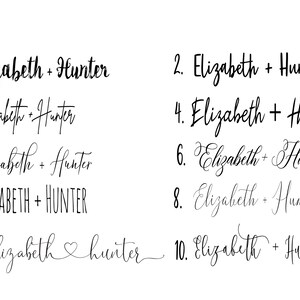 abeth + Hunter
2. Elizabeth + Hu
abeth + Hunter
4. Elizabeth + H
abeth + Hunter
6. Elizabeth + Hu
ABETH + HUNTER
8. Elizabeth + Hu
lizabeth hunter
10. Elizabeth + Hu